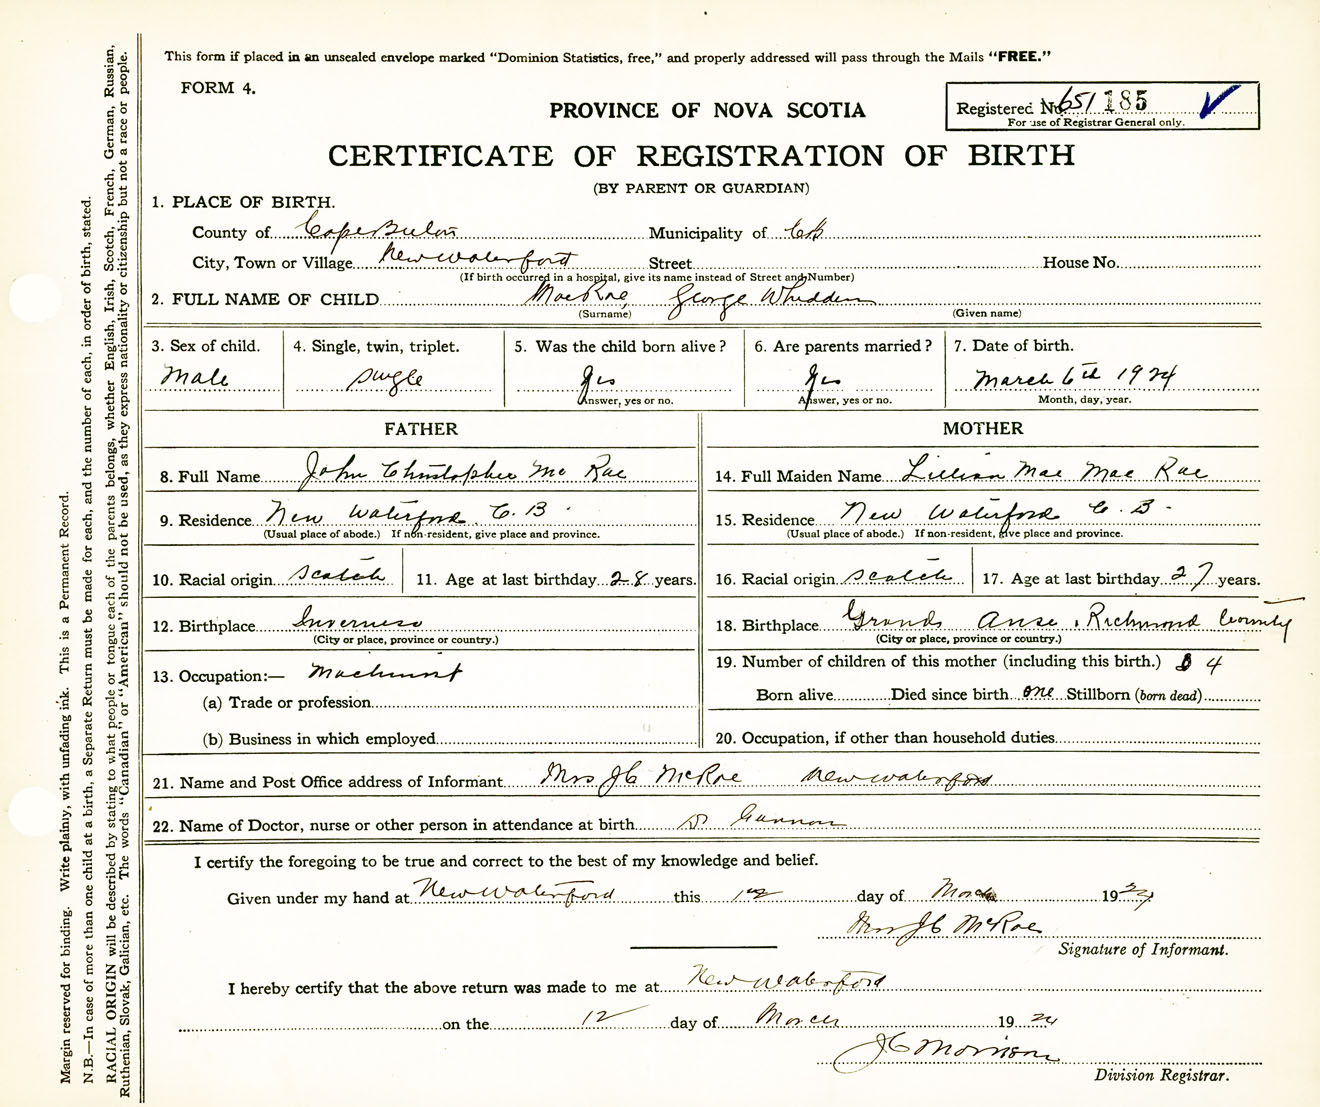 This form if placed in an unsealed envelope marked "Dominion Statistics, free," and properly addressed will pass through the Mails "FREE."
FORM 4.
Registered No. 651 185
For use of Registrar General only.
PROVINCE OF NOVA SCOTIA
CERTIFICATE OF REGISTRATION OF BIRTH
(BY PARENT OR GUARDIAN)
1. PLACE OF BIRTH.
County of Cape Breton Municipality of CB
City, Town or Village New Waterford Street House No.
(If birth occurred in a hospital, give its name instead of Street and Number)
2. FULL NAME OF CHILD MacRae George Whidden
(Surname) (Given name)
3. Sex of child. 4. Single, twin, triplet. 5. Was the child born alive? 6. Are parents married? 7. Date of birth.
Male single yes yes March 6th 1924
Answer, yes or no. Answer, yes or no. Month, day, year.
FATHER MOTHER
8. Full Name John Christopher Mc Rae 14. Full Maiden Name Lillian Mae Mac Rae
9. Residence New Waterford C. B. 15. Residence New Waterford C. B.
(Usual place of abode.) If non-resident, give place and province. (Usual place of abode.) If non-resident, give place and province.
10. Racial origin Scotch 11. Age at last birthday 28 years. 16. Racial origin Scotch 17. Age at last birthday 27 years.
12. Birthplace Inverness 18. Birthplace Grand Anse, Richmond County
(City or place, province or country.) (City or place, province or country.)
13. Occupation:— Machinist 19. Number of children of this mother (including this birth.) 4
(a) Trade or profession Born alive Died since birth one Stillborn (born dead)
(b) Business in which employed 20. Occupation, if other than household duties
21. Name and Post Office address of Informant Mrs JC McRae New Waterford
22. Name of Doctor, nurse or other person in attendance at birth Dr Gannon
I certify the foregoing to be true and correct to the best of my knowledge and belief.
Given under my hand at New Waterford this 12 day of March 1924
Mrs JC McRae
Signature of Informant.
I hereby certify that the above return was made to me at New Waterford
on the 12 day of March 19 24
JC Morrison
Division Registrar.
Margin reserved for binding. Write plainly, with unfading ink. This is a Permanent Record.
N.B.—In case of more than one child at a birth, a Separate Return must be made for each, and the number of each, in order of birth, stated.
RACIAL ORIGIN will be described by stating to what people or tongue each of the parents belongs, whether English, Irish, Scotch, French, German, Russian,
Ruthenian, Slovak, Galician, etc. The words "Canadian" or "American" should not be used, as they express nationality or citizenship but not a race or people.